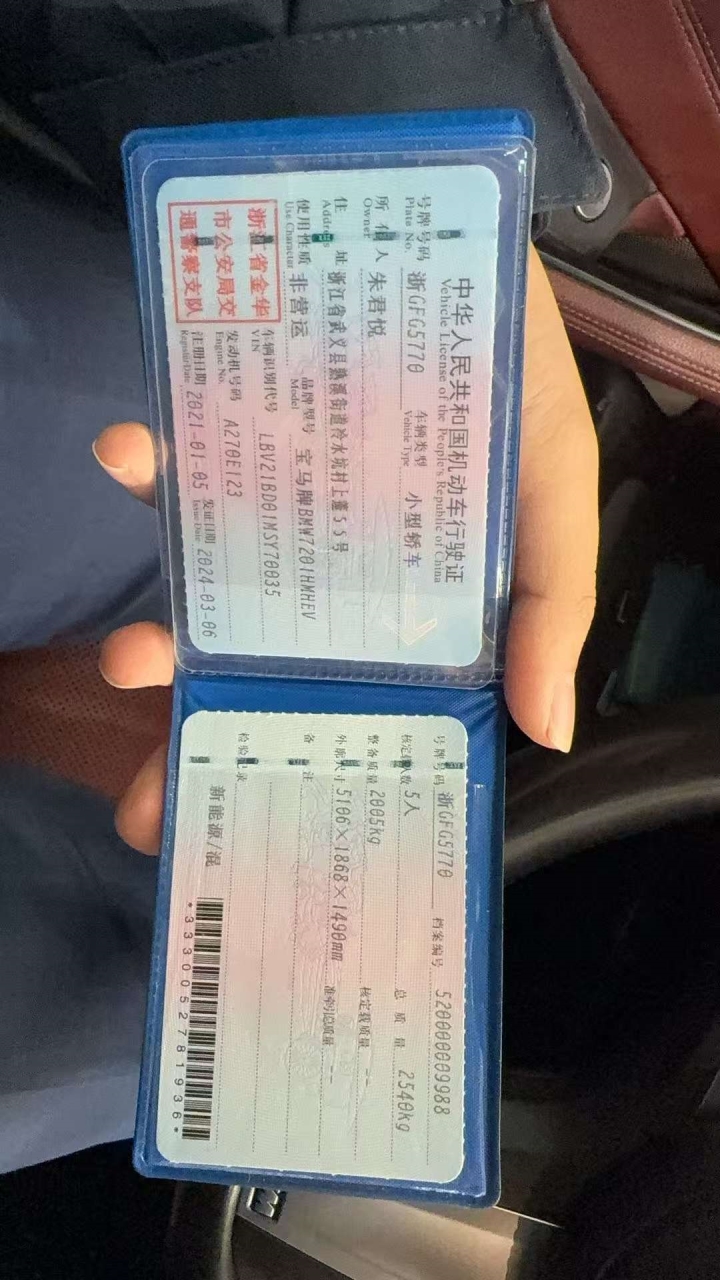 中华人民共和国机动车行驶证
Vehicle License of the People's Republic of China
号牌号码 浙GFG5770 车辆类型 小型轿车
Plate No. Vehicle Type
所有人 朱君悦
Owner
住址 浙江省武义县熟溪街道冷水坑村上蓬55号
Address
使用性质 非营运 品牌型号 宝马牌BMW7201HMHEV
Use Character Model
浙江省金华
市公安局交
通警察支队
车辆识别代号 LBV21BD01MSY70035
VIN
发动机号码 A270E123
Engine No.
注册日期 2021-01-05 发证日期 2024-03-06
Register Date Issue Date
号牌号码 浙GFG5770 档案编号 520000009988
核定载人数 5人 总质量 2540kg
整备质量 2005kg 核定载质量 --
外廓尺寸 5106×1868×1490mm 准牵引总质量 --
备注
检验记录
新能源/混
*3330052781936*